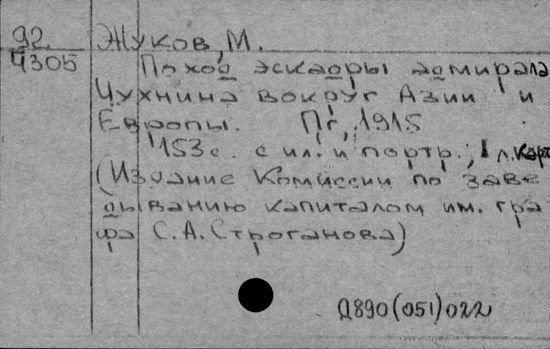 92. Жуков, М.
4305 Поход эскадры адмирала
Чухнина вокруг Азии и
Европы. Пг, 1915
153с. с ил. и портр.; 1 л. карт
(Издание Комиссии по заве
дыванию капиталом им. гра
фа С. А. Строганова)
Д890(051)022